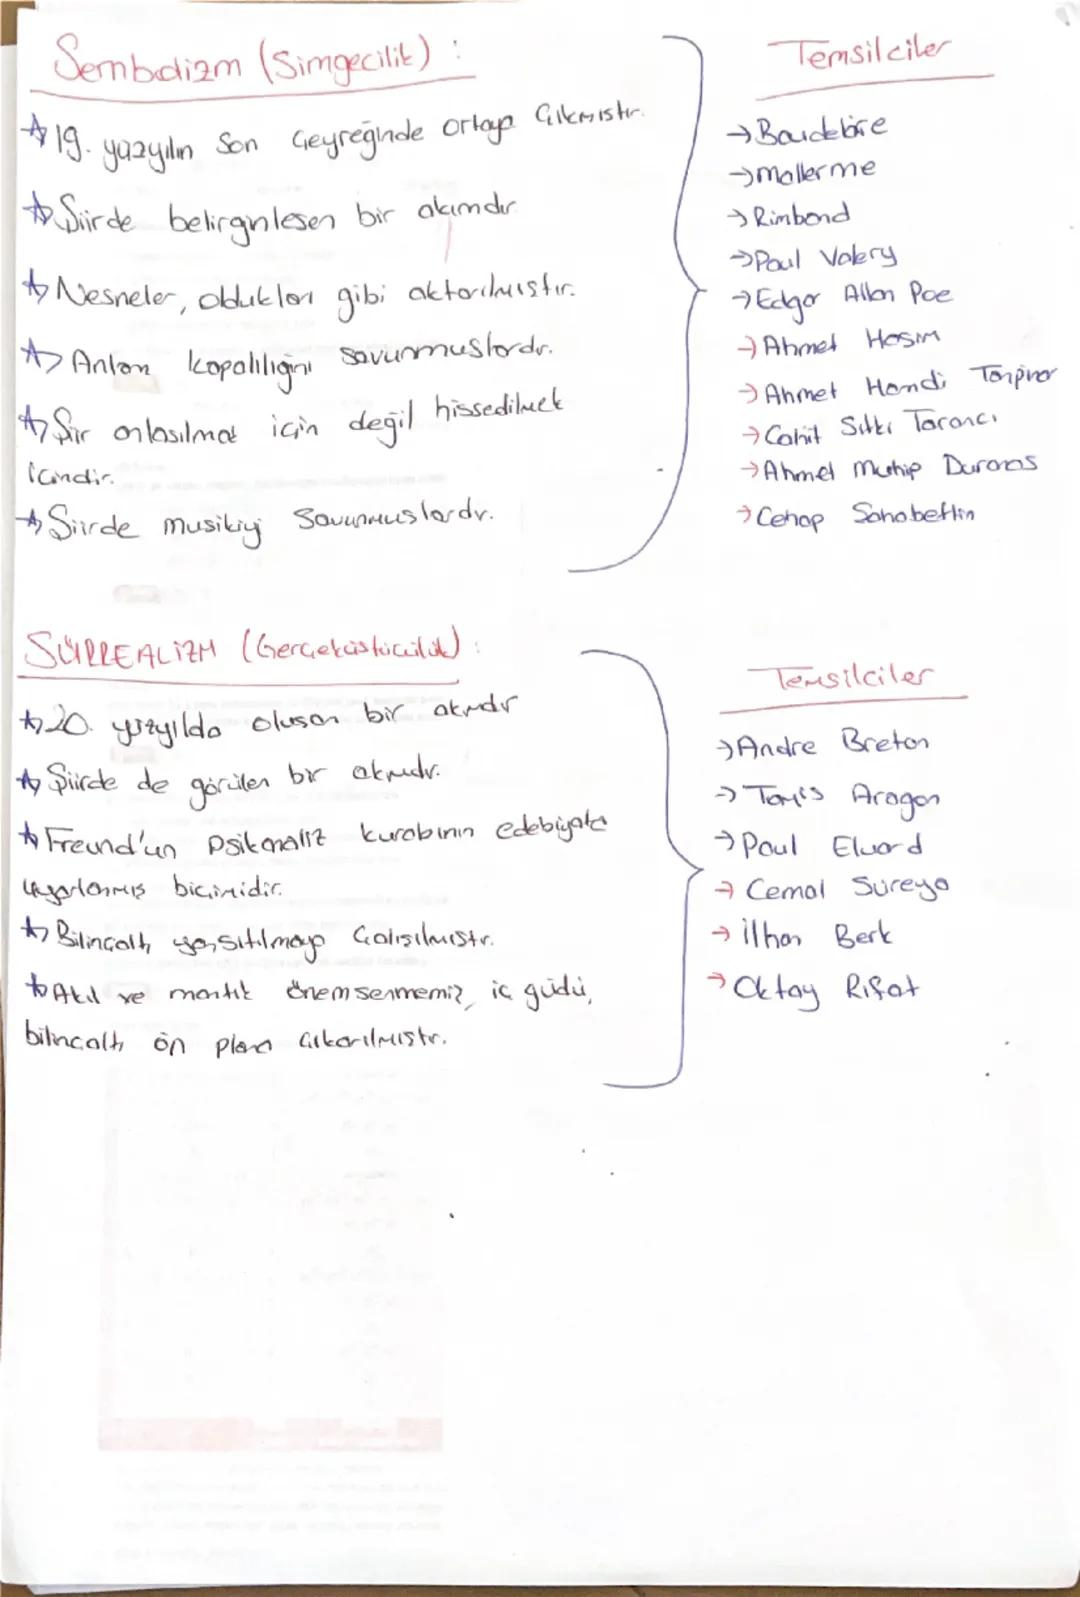 Sembolizm (Simgecilik) :
19. yüzyılın Son Çeyreğinde ortaya Çıkmıştır.
Şiirde belirginleşen bir akımdır
Nesneler, oldukları gibi aktarılmıştır.
Anlam kapalılığını savunmuşlardır.
Şiir anlaşılmak için değil hissedilmek
içindir.
Şiirde musikiyi Savunmuşlardır.
Temsilciler
→ Baudelaire
→ Mallerme
→ Rimbond
→ Paul Valery
→ Edgar Allan Poe
→ Ahmet Haşim
→ Ahmet Hamdi Tanpınar
→ Cahit Sıtkı Tarancı
→ Ahmet Muhip Dıranas
→ Cenap Şahabettin
SÜRREALİZM (Gerçeküstücülük) :
20. yüzyılda oluşan bir akımdır
Şiirde de görülen bir akımdır.
Freund'un Psikanaliz kuramının edebiyata
uyarlanmış biçimidir.
Bilinçaltı yansıtılmaya Çalışılmıştır.
Akıl ve mantık önemsenmemiş, iç güdü,
bilinçaltı ön plana çıkarılmıştır.
Temsilciler
→ Andre Breton
→ Aragon
→ Paul Eluard
→ Cemal Süreya
→ İlhan Berk
→ Oktay Rifat